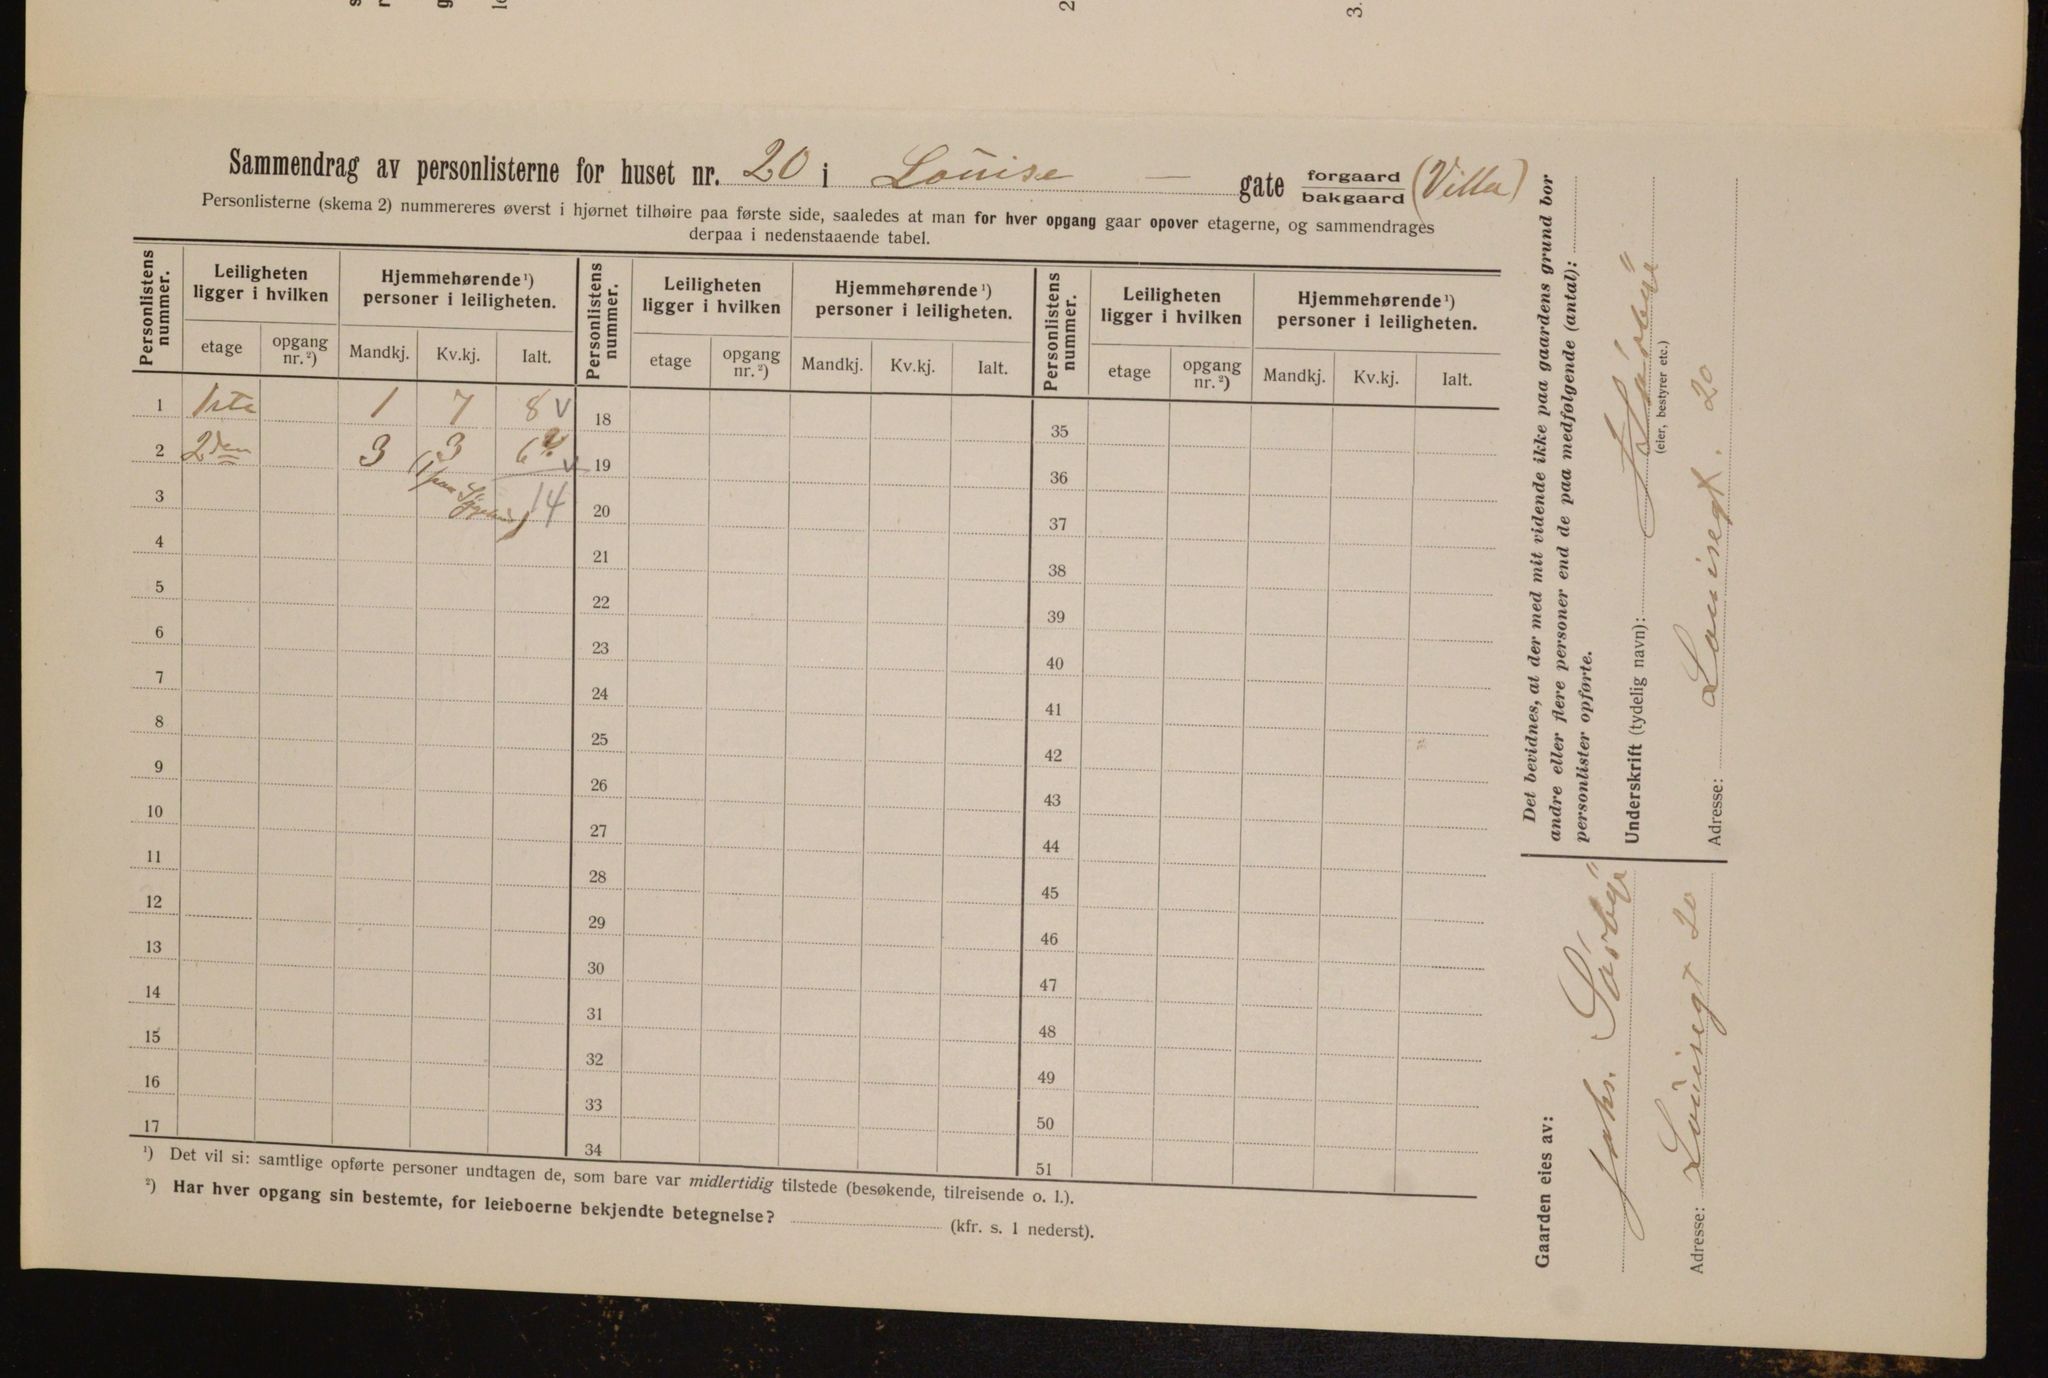 Sammendrag av personlisterne for huset nr. 20 i Louise — gate forgaard bakgaard (Villa)
Personlisterne (skema 2) nummereres øverst i hjørnet tilhøire paa første side, saaledes at man for hver opgang gaar opover etagerne, og sammendrages
derpaa i nedenstaaende tabel.
Personlistens nummer. Leiligheten ligger i hvilken Hjemmehørende ¹) personer i leiligheten. Personlistens nummer. Leiligheten ligger i hvilken Hjemmehørende ¹) personer i leiligheten. Personlistens nummer. Leiligheten ligger i hvilken Hjemmehørende ¹) personer i leiligheten.
etage opgang nr. ²) Mandkj. Kv.kj. Ialt. etage opgang nr. ²) Mandkj. Kv.kj. Ialt. etage opgang nr. ²) Mandkj. Kv.kj. Ialt.
1 1ste 1 7 8 V 18 35
2 2den 3 3 6 V 19 36
3 (1 paa 14 20 37
4 21 38
5 22 39
6 23 40
7 24 41
8 25 42
9 26 43
10 27 44
11 28 45
12 29 46
13 30 47
14 31 48
15 32 49
16 33 50
17 34 51
¹) Det vil si: samtlige opførte personer undtagen de, som bare var midlertidig tilstede (besøkende, tilreisende o. l.).
²) Har hver opgang sin bestemte, for leieboerne bekjendte betegnelse? (kfr. s. 1 nederst).
Det bevidnes, at der med mit vidende ikke paa gaardens grund bor
andre eller flere personer end de paa medfølgende (antal):
personlister opførte.
Underskrift (tydelig navn):
(eier, bestyrer etc.)
Adresse: Louisegt. 20
Gaarden eies av:
Johs. Sörbye
Adresse: Louisegt 20